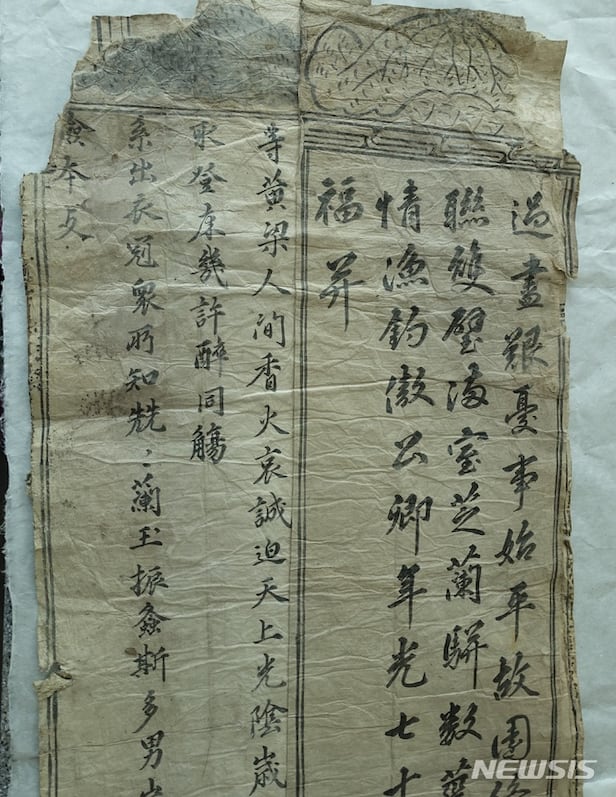 過盡艱憂事始平故園
聯雙璧滿室芝蘭駢數
情漁釣傲公卿年光七十
福并
等黃梁人間香火哀誠迫天上光陰歲
來登床幾許醉同觴
系出衣冠衆所知兟〻蘭玉振螽斯多男
本支
NEWSIS